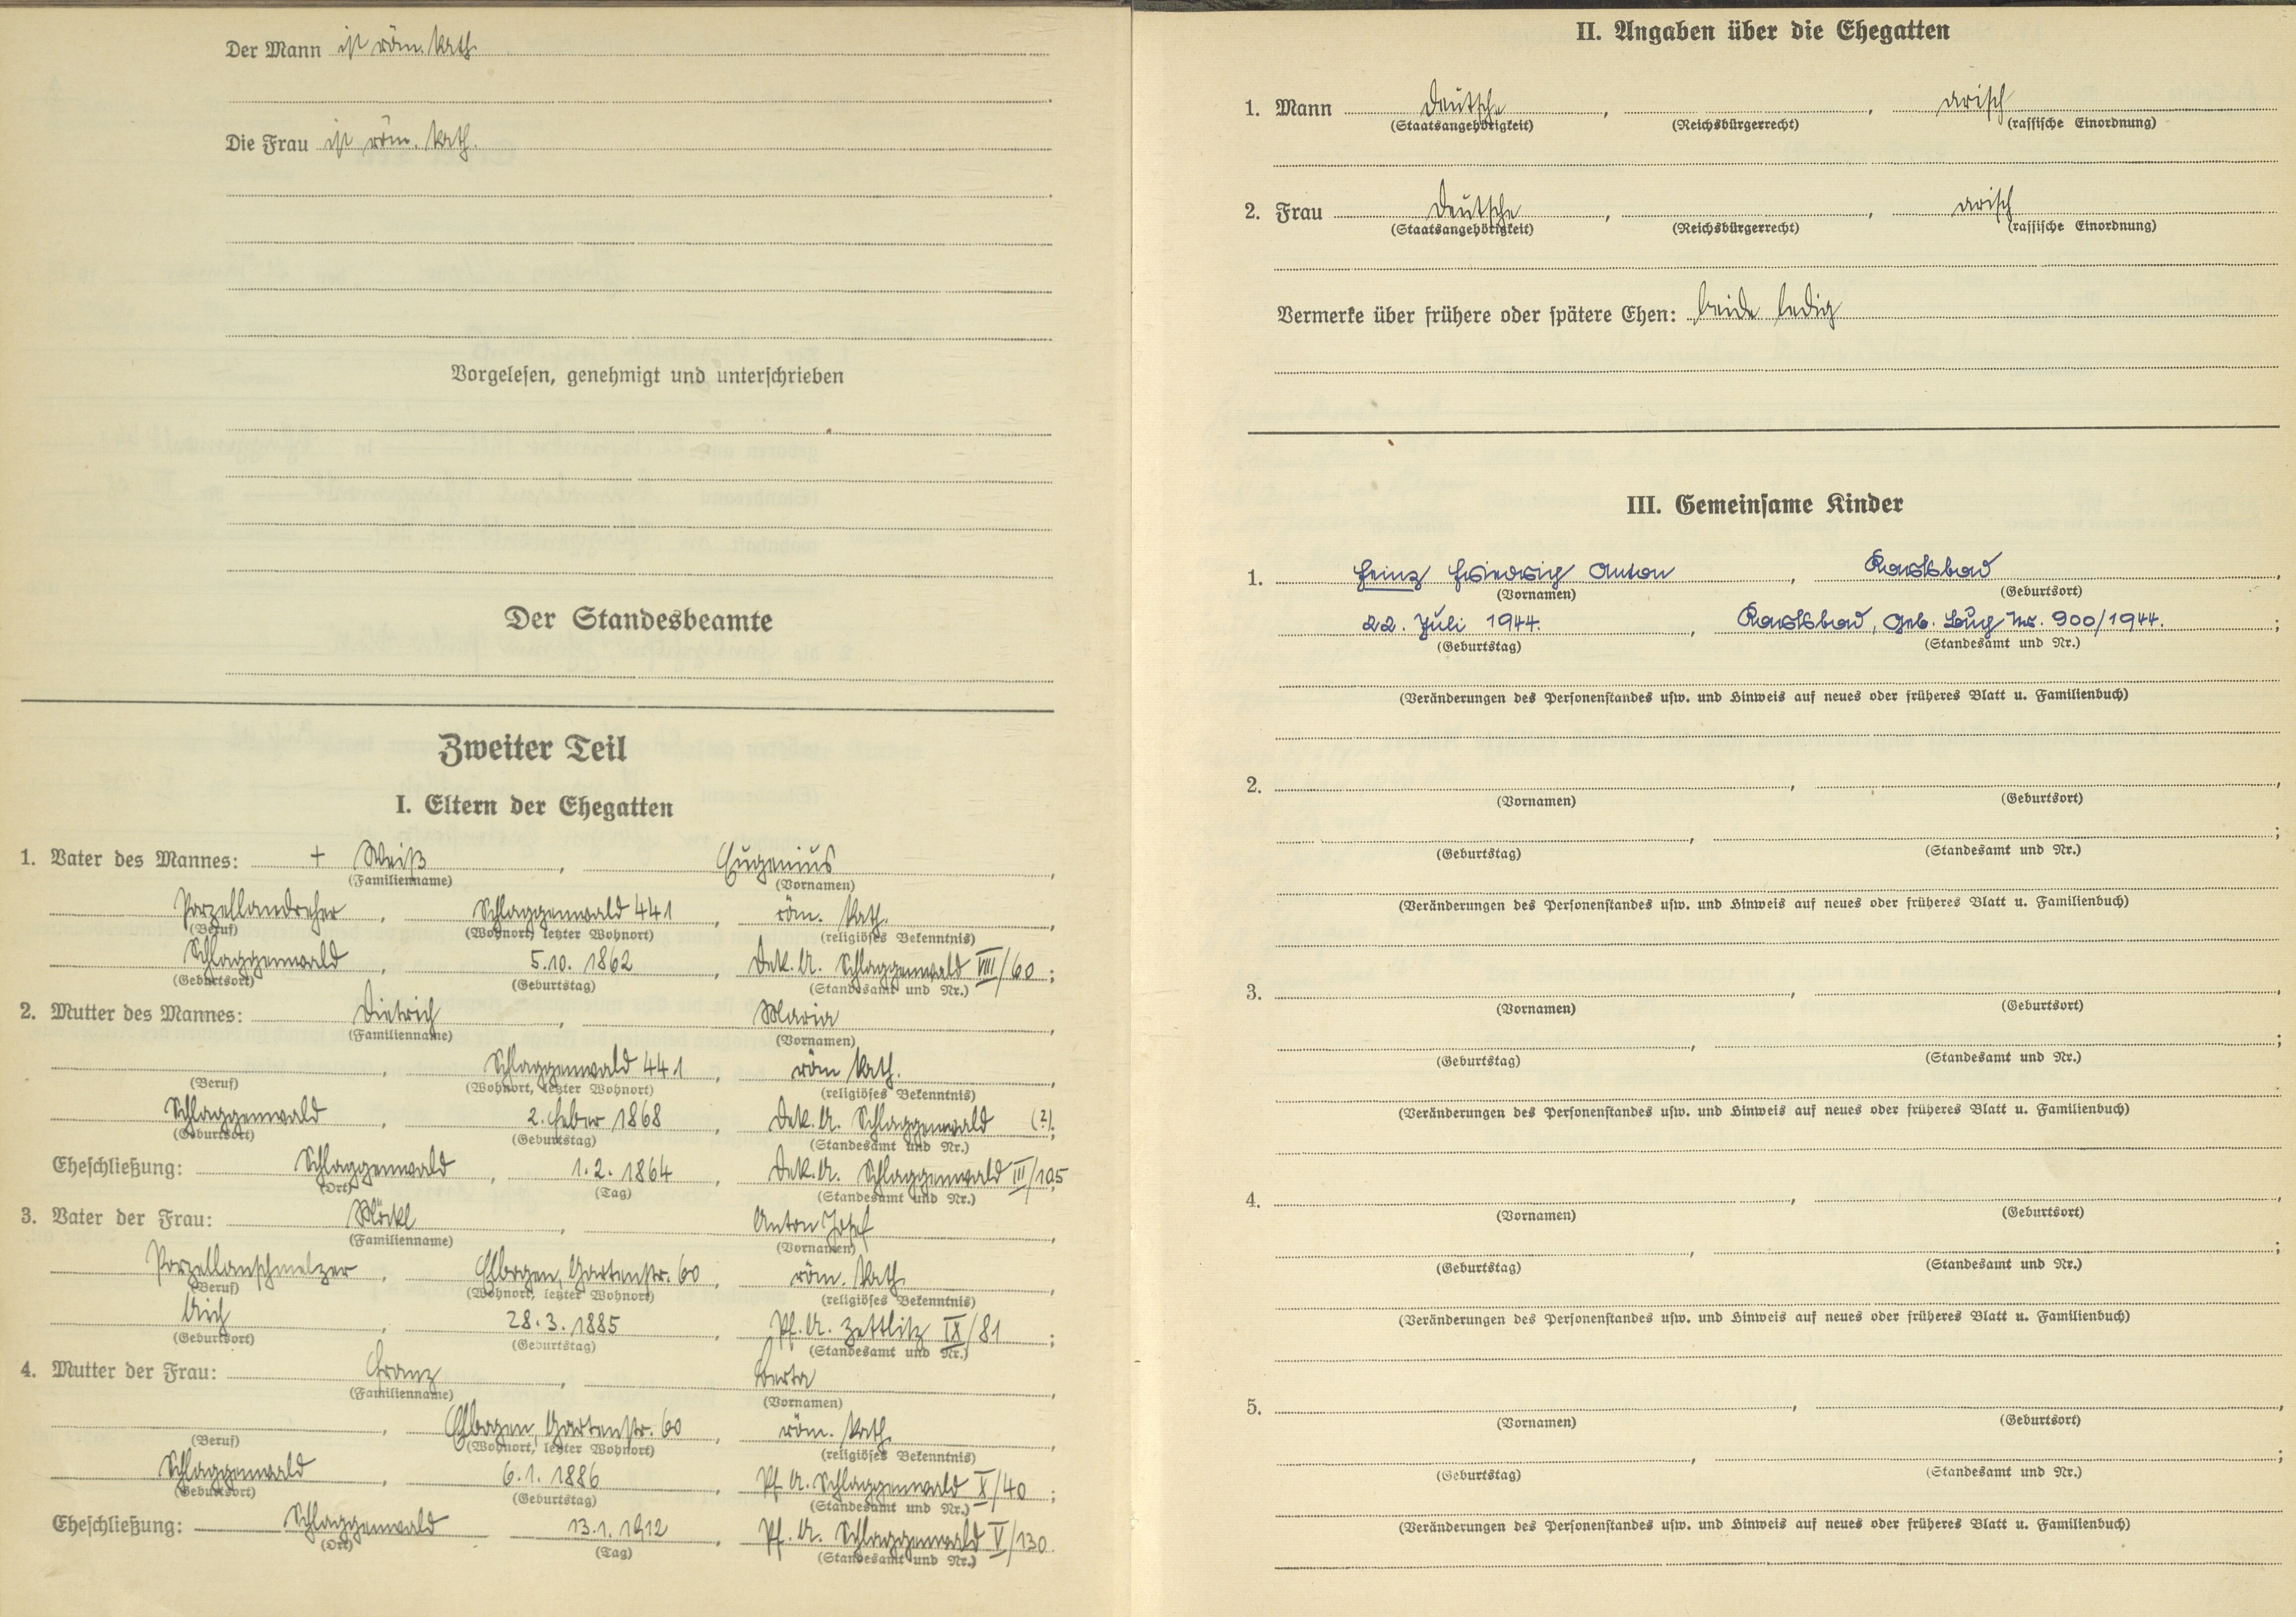 Der Mann ist röm. kath.
Die Frau ist röm. kath.
Vorgelesen, genehmigt und unterschrieben
Der Standesbeamte
Zweiter Teil
I. Eltern der Ehegatten
1. Vater des Mannes: + Weiß, Eugenius,
(Familienname) (Vornamen)
Porzellandreher, Schlaggenwald 441, röm. kath.,
(Beruf) (Wohnort, letzter Wohnort) (religiöses Bekenntnis)
Schlaggenwald, 5.10. 1862, Dek. A. Schlaggenwald VIII/60;
(Geburtsort) (Geburtstag) (Standesamt und Nr.)
2. Mutter des Mannes: Dietrich, Maria,
(Familienname) (Vornamen)
Schlaggenwald 441, röm kath.,
(Beruf) (Wohnort, letzter Wohnort) (religiöses Bekenntnis)
Schlaggenwald, 2. Feber 1868, Dek. A. Schlaggenwald (?);
(Geburtsort) (Geburtstag) (Standesamt und Nr.)
Eheschließung: Schlaggenwald, 1.2. 1864, Dek. A. Schlaggenwald III/105
(Ort) (Tag) (Standesamt und Nr.)
3. Vater der Frau: Möckl, Anton Josef,
(Familienname) (Vornamen)
Porzellanschmelzer, Elbogen, Gartenstr. 60, röm. kath.,
(Beruf) (Wohnort, letzter Wohnort) (religiöses Bekenntnis)
Aich, 28.3. 1885, Pf. A. Zettlitz IX/81;
(Geburtsort) (Geburtstag) (Standesamt und Nr.)
4. Mutter der Frau: Franz, Berta,
(Familienname) (Vornamen)
Elbogen, Gartenstr. 60, röm. kath.,
(Beruf) (Wohnort, letzter Wohnort) (religiöses Bekenntnis)
Schlaggenwald, 6.1. 1886, Pf. A. Schlaggenwald X/40;
(Geburtsort) (Geburtstag) (Standesamt und Nr.)
Eheschließung: Schlaggenwald 13.1. 1912, Pf. A. Schlaggenwald V/130.
(Ort) (Tag) (Standesamt und Nr.)
II. Angaben über die Ehegatten
1. Mann Deutsche, , arisch
(Staatsangehörigkeit) (Reichsbürgerrecht) (rassische Einordnung)
2. Frau Deutsche, , arisch
(Staatsangehörigkeit) (Reichsbürgerrecht) (rassische Einordnung)
Vermerke über frühere oder spätere Ehen: beide ledig
III. Gemeinsame Kinder
1. Heinz Friedrich Anton, Karlsbad,
(Vornamen) (Geburtsort)
22. Juli 1944., Karlsbad, Geb. Buch Nr. 900/1944.;
(Geburtstag) (Standesamt und Nr.)
(Veränderungen des Personenstandes usw. und Hinweis auf neues oder früheres Blatt u. Familienbuch)
2. , ,
(Vornamen) (Geburtsort)
, ;
(Geburtstag) (Standesamt und Nr.)
(Veränderungen des Personenstandes usw. und Hinweis auf neues oder früheres Blatt u. Familienbuch)
3. , ,
(Vornamen) (Geburtsort)
, ;
(Geburtstag) (Standesamt und Nr.)
(Veränderungen des Personenstandes usw. und Hinweis auf neues oder früheres Blatt u. Familienbuch)
4. , ,
(Vornamen) (Geburtsort)
, ;
(Geburtstag) (Standesamt und Nr.)
(Veränderungen des Personenstandes usw. und Hinweis auf neues oder früheres Blatt u. Familienbuch)
5. , ,
(Vornamen) (Geburtsort)
, ;
(Geburtstag) (Standesamt und Nr.)
(Veränderungen des Personenstandes usw. und Hinweis auf neues oder früheres Blatt u. Familienbuch)